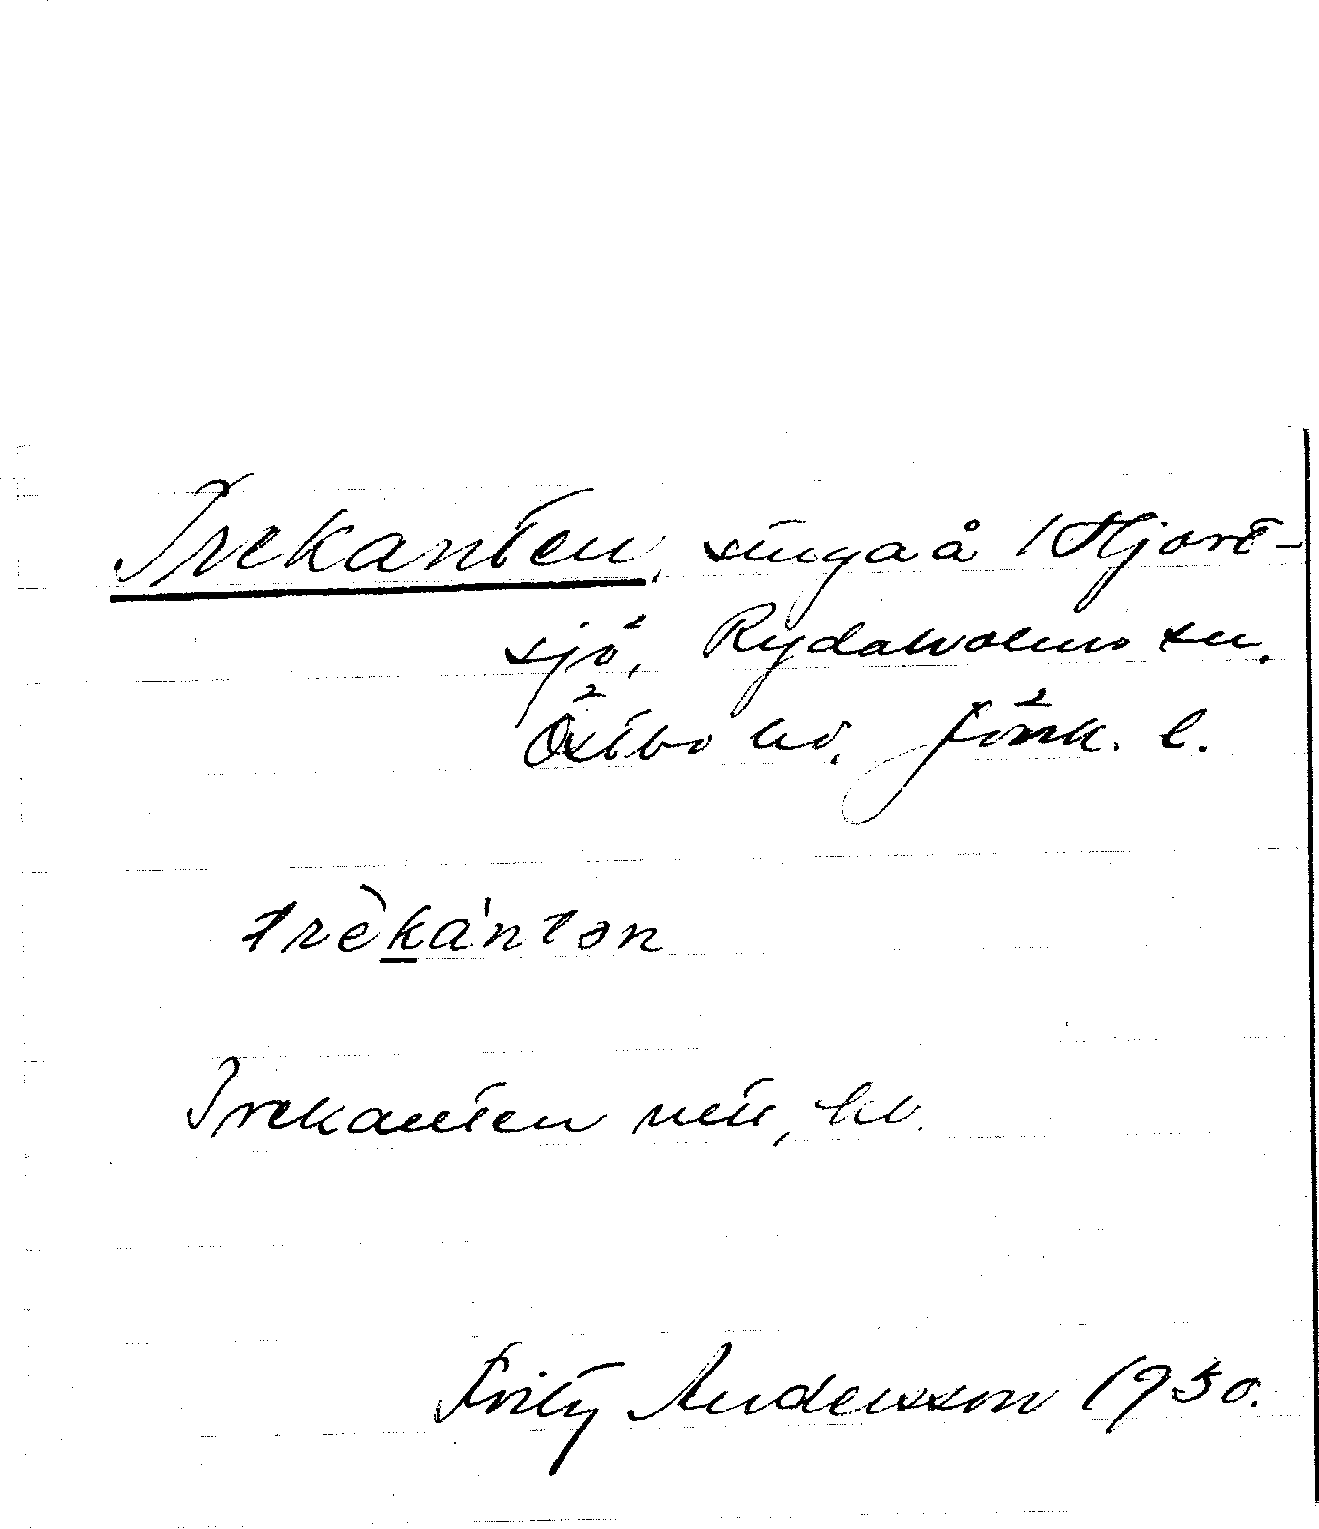 Trekanten, stuga å 1 Hjort-
sjö, Rydaholms sn.
Östbo hd. Jönk. l.
trèk̲a'ntən
Trekanten
Fritz Andersson 1930.